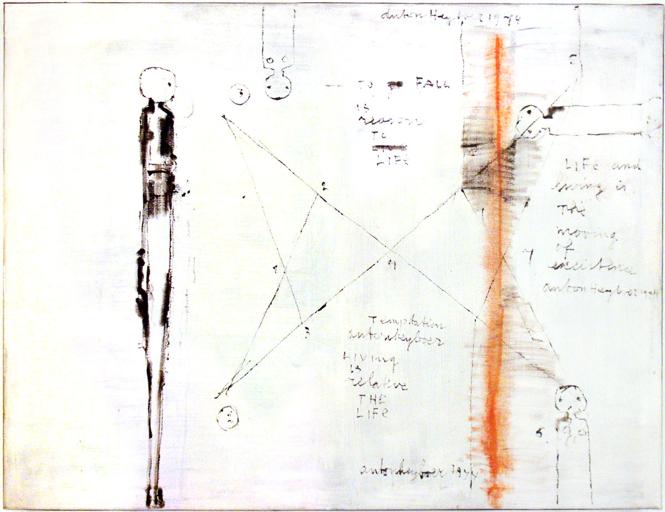 anton Heyboer 1974
TO FALL
is
reason
TO
LIFE
LIFE and
living is
THE
moving
of
existence
anton Heyboer
Temptation
anton heyboer
LIVING
is
relative
THE
LIFE
anton heyboer 1974